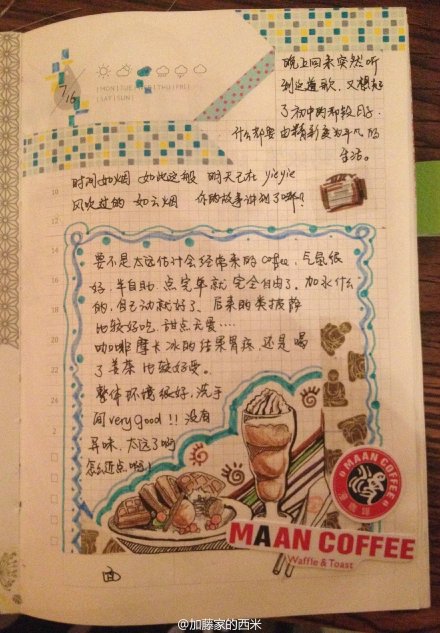 7/16
|MON|TUE|WED|THU|FRI|
|SAT|SUN|
晚上回来突然听
到这首歌,又想起
了初中的那段日子
什么都要由精彩变为平凡的
生活。
时间如烟 如此这般 明天已在 yie yie
风吹过的 如云烟 你的故事讲到了哪?
要不是太远估计会经常来的coffee,气氛很
好,半自助 点完单就完全自由了、加水什么
的,自己动就好了、后来的类披萨
比较好吃,甜点无爱…
咖啡摩卡冰的结果胃疼,还是喝
了姜茶比较好受。
整体环境很好,洗手
间very good!!没有
异味,太远了啊
怎么近点啊!
MAAN COFFEE
漫咖啡
MAAN COFFEE
Waffle & Toast
10
12
14
16
18
20
22
24
26
@加藤家的西米